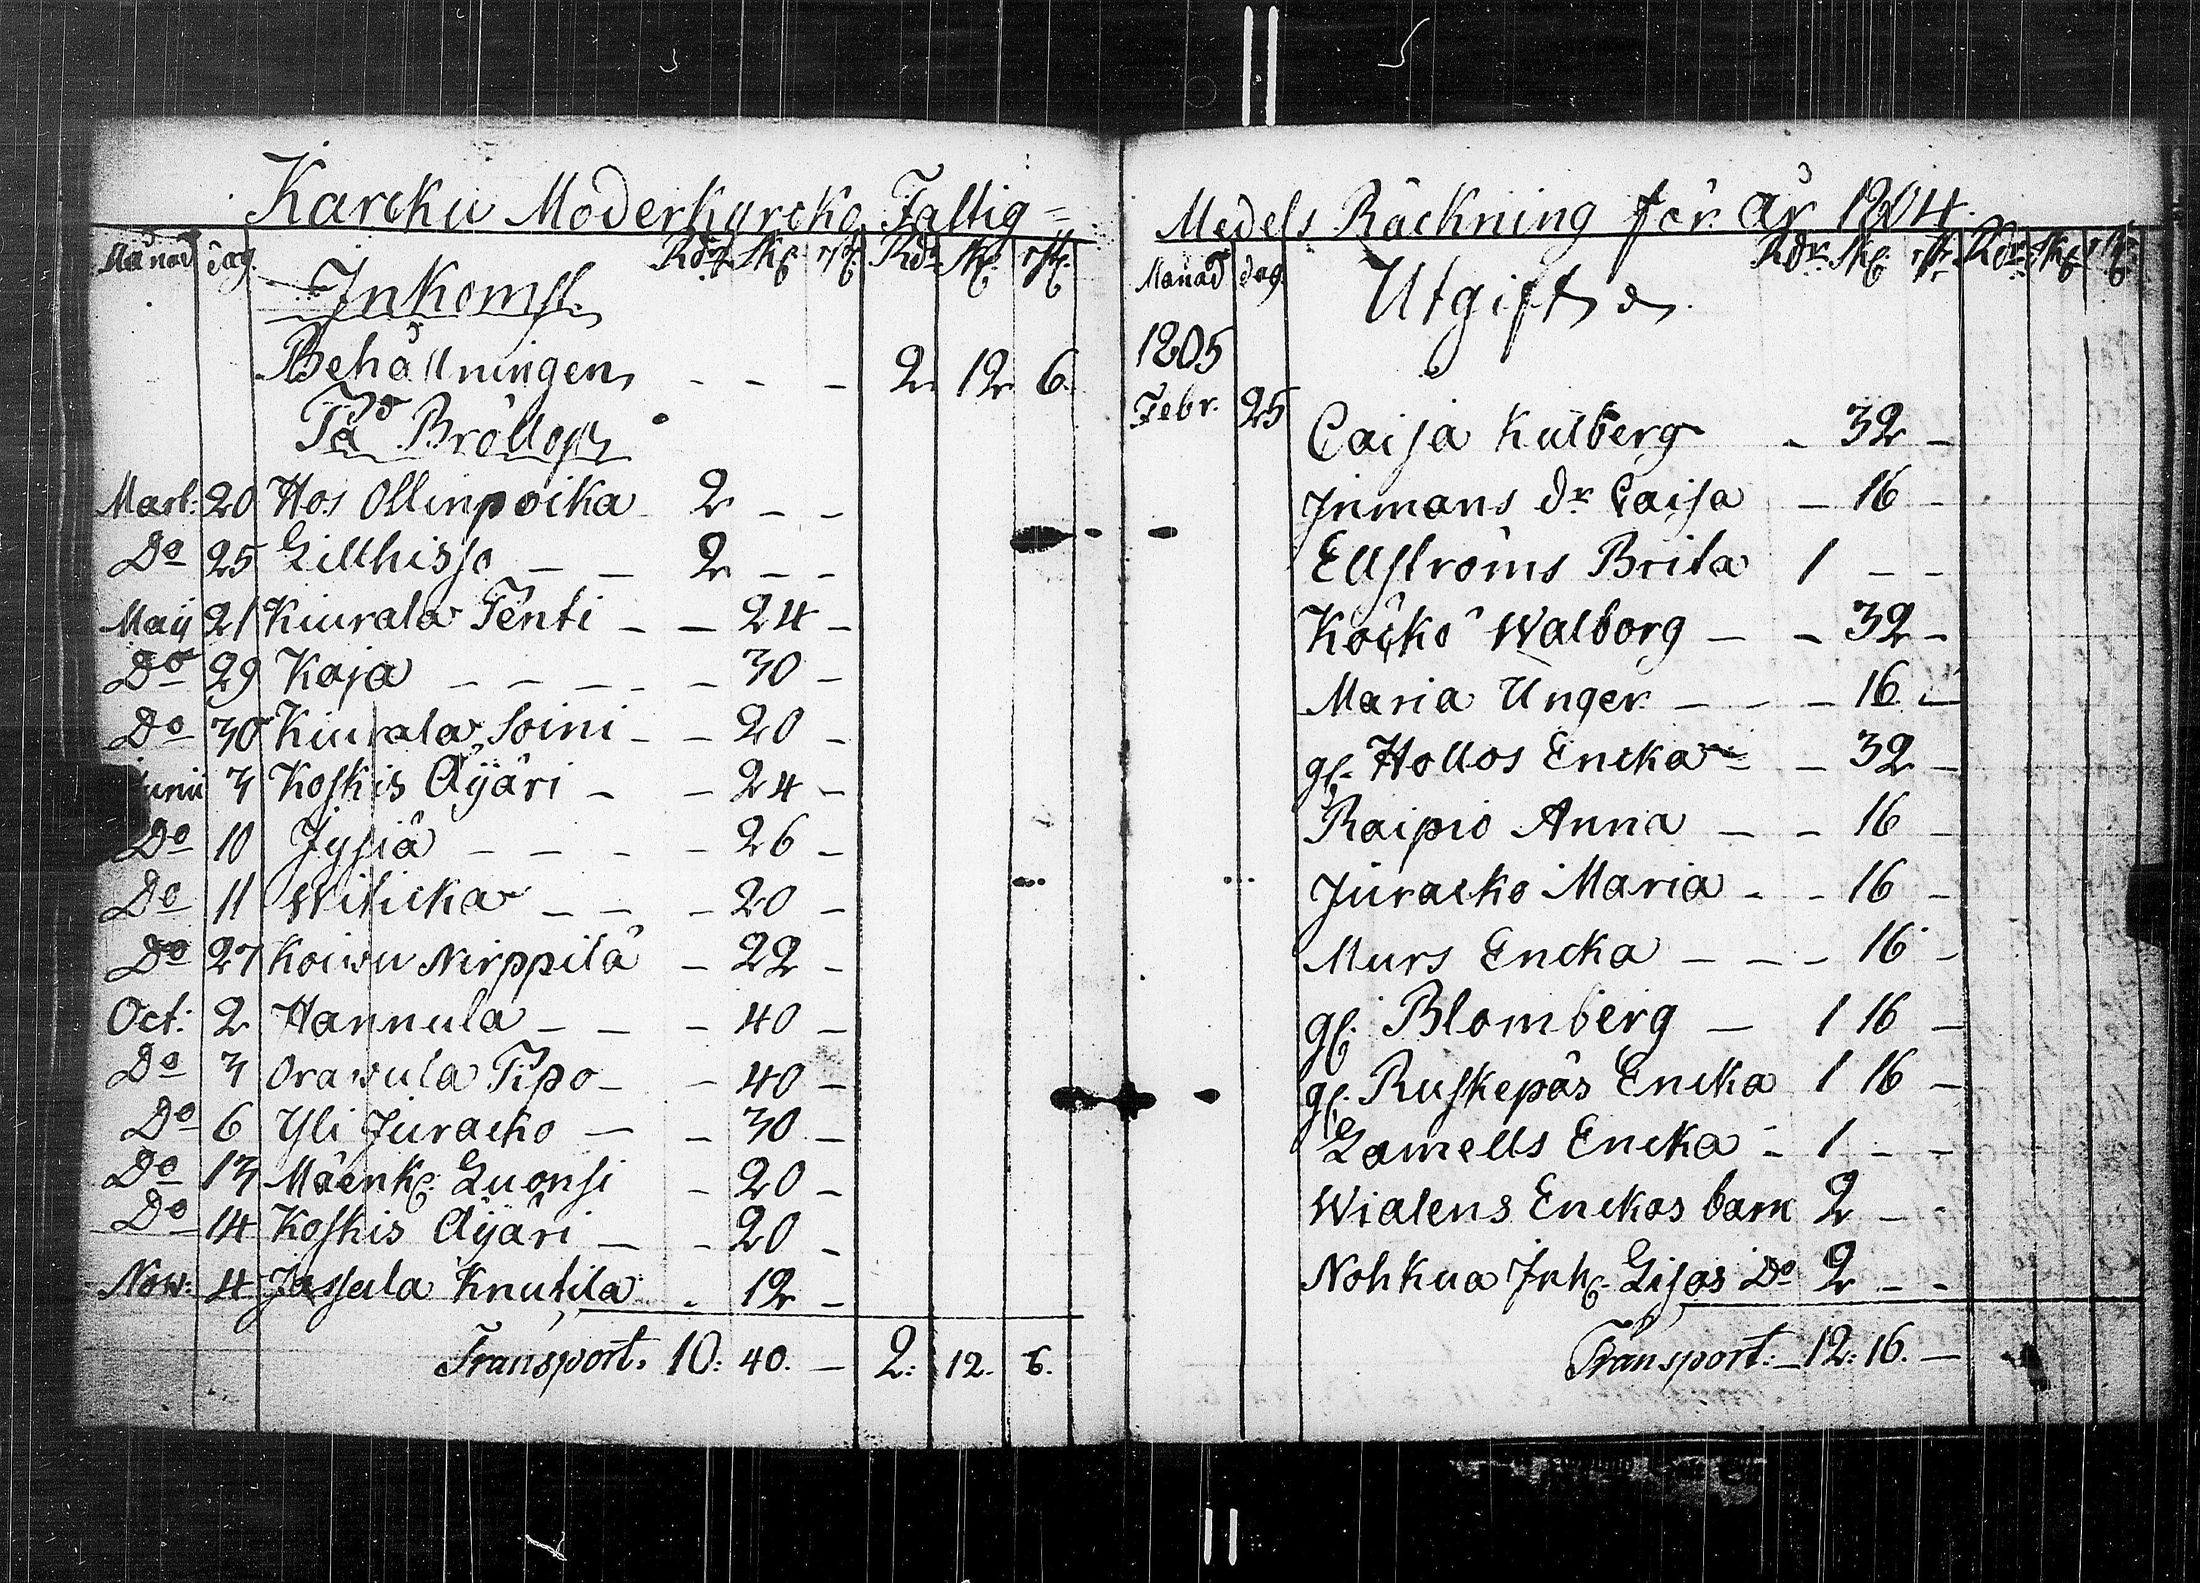 Karcku Moderkyrcko Fattig=
Månad dag. Rdr. Sk. rst. Rdr. Sk. rst.
Inkomst.
Behållningen - - - 2. 12 6.
På Bröllop
Mart: 20 Hos Ollinpoika 2 - -
Do 25 Lillhisso - - 2 - -
Maij 21 Kiurala Tenti - - 24 -
Do 29 Kaja - - - - - 30 -
Do 30 Kiurala Soini - - 20 -
Junii 3 Koskis Äijäri - - 24 -
Do 10 Jysiä - - - - 26 -
Do 11 Witicka - - - 20 -
Do 27 Koiwu Nirppilä - 22 -
Oct: 2 Hannula - - - 40 -
Do 3 Orawula Tipo - - 40 -
Do 6 Yli Juracko - - 30 -
Do 13 Mäenk. Luonsi - 20 -
Do 14 Koskis Äijäri - - 20 -
Now: 4 Jassala Knutila - 12 -
Transport. 10: 40. - 2: 12. 6.
Medels Räckning för år 1804.
Månad dag. Rdr. Sk. rst. Rdr. Sk. rst.
Utgifter.
1805
Febr. 25 Caisa Kulberg - 32 -
Inmans dr Caisa - 16 -
Ellströms Brita 1 - -
Köckö Walborg - - 32 -
Maria Unger - - - 16 -
gl. Hollos Encka - - 32 -
Raipio Anna - - 16 -
Juracko Maria - - 16 -
Murs Encka - - - 16 -
gl. Blomberg - 1 16 -
gl. Ruskepäs Encka 1 16 -
Gamells Encka - 1 - -
Wialens Enckas barn 2 - -
Nohkua Inh. Lisas Do 2 - -
Transport: - 12: 16. -